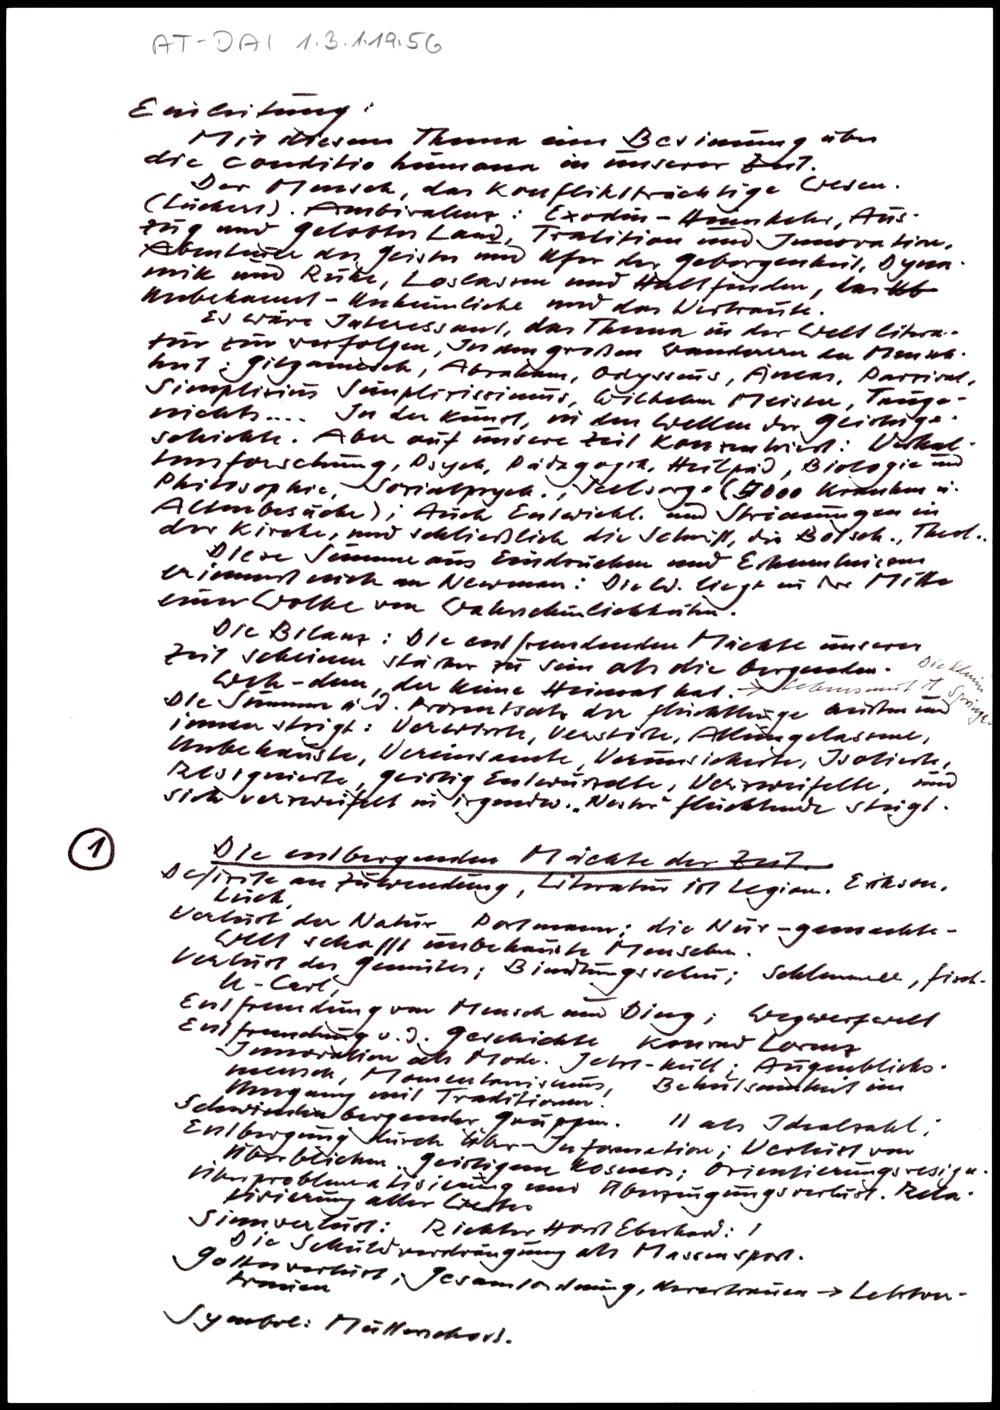 AT-DAI 1.3.1.19.56
Einleitung:
Mit diesem Thema eine Besinnung über
die conditio humana in unserer Zeit.
Der Mensch, das konfliktsträchtige Wesen.
(Lückert). Ambivalenz: Exodus - Heimkehr, Aus-
zug und gelobtes Land, Tradition und Innovation,
Abenteuer des Geistes und Ufer der Geborgenheit, Dyna-
mik und Ruhe, Loslassen und Haltfinden, das
Unbekannt-Unheimliche und das Vertraute.
Es wäre interessant, das Thema in der Weltlitera-
tur zu verfolgen, in den großen Wanderern der Mensch-
heit: Gilgamesch, Abraham, Odysseus, Äneas, Parzival,
Simplizius Simplizissimus, Wilhelm Meister, Tauge-
nichts.... In der Kunst, in den Wellen der Geistesge-
schichte. Aber auf unsere Zeit konzentriert: Verhal-
tensforschung, Psych, Pädagogik, Heilpäd, Biologie und
Philosophie, Sozialpsych., Seelsorge (7000 Kranken u.
Altenbesuche); Auch Entwickl. und Strömungen in
der Kirche, und schließlich die Schrift, die Botsch., Theol..
Diese Summe aus Eindrücken und Erkenntnissen
erinnert mich an Newman: Die W. liegt in der Mitte
einer Wolke von Wahrscheinlichkeiten.
Die Bilanz: Die entfremdenden Mächte unserer
Zeit scheinen stärker zu sein als die bergenden.
Weh-dem, der keine Heimat hat. → Lebensmut ↑
Die kleinen
Die Summe u.d. Prozentsatz der Flüchtlinge außen und
innen steigt: Verwirrte, Verstörte, Alleingelassene,
Unbehauste, Vereinsamte, Verunsicherte, Isolierte,
Resignierte, geistig Entwurzelte, Verzweifelte, und
sich verzweifelt in irgendw. "Nester" Flüchtende steigt.
1
Die entbergenden Mächte der Zeit.
Defizite an Zuwendung, Literatur ist Legion. Erikson,
Lück,
Verlust der Natur Portmann: die Nur-gemachte-
Welt schafft unbehauste Menschen.
Verlust des Gemütes; Bindungsscheu; Schlemmer, Fisch-
Entfremdung von Mensch und Ding; Wegwerfwelt
Entfremdung v.d. Geschichte Konrad Lorenz
Innovation als Mode. Jetzt-Kult; Augenblicks-
mensch, Momentanismus! Behutsamkeit im
Umgang mit Traditionen!
Schwinden bergender Gruppen. 11 als Idealzahl;
Entbergung durch Über-Information; Verlust von
Überblicken. Geistigem Kosmos; Orientierungsresign.
Überproblematisierung und Überzeugungsverlust. Rela-
tivierung aller Werte
Sinnverlust: Richter Horst Eberhard: !
Die Schuldverdrängung als Massensport.
Gottesverlust; Gesamtordnung, Urvertrauen → Letztver-
trauen
Symbol: Mutterschoß.